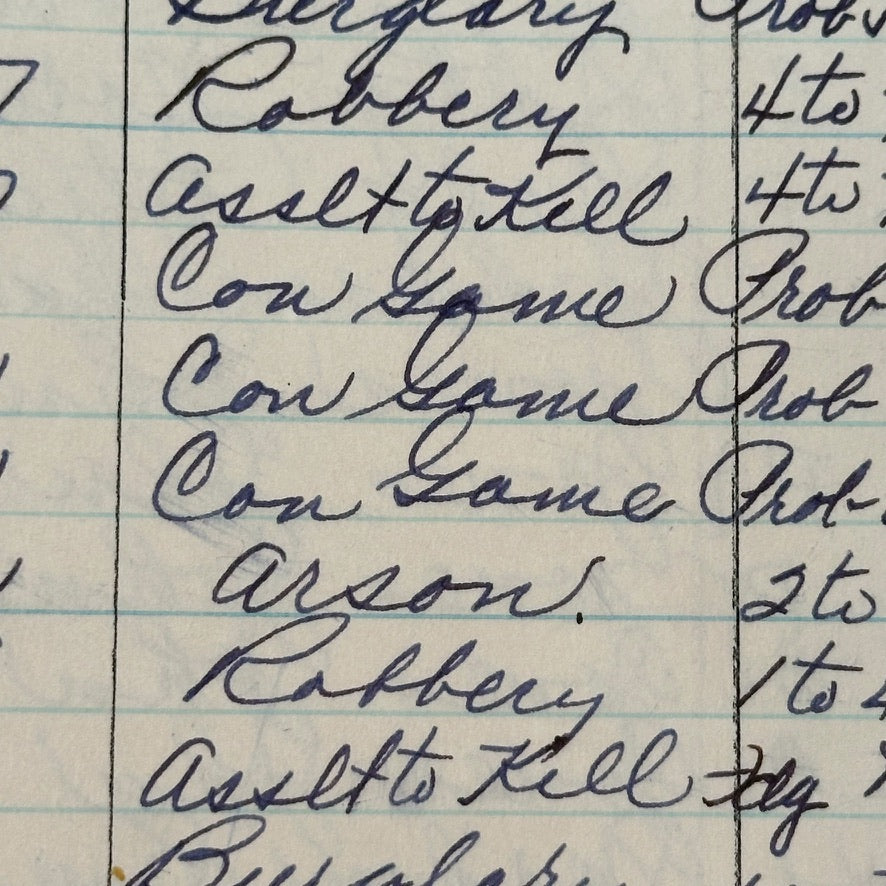 Burglary Prob
Robbery 4 to
Asslt to Kill 4 to
Con Game Prob
Con Game Prob
Con Game Prob
Arson. 2 to
Robbery 1 to 4
Asslt to Kill
Burglary